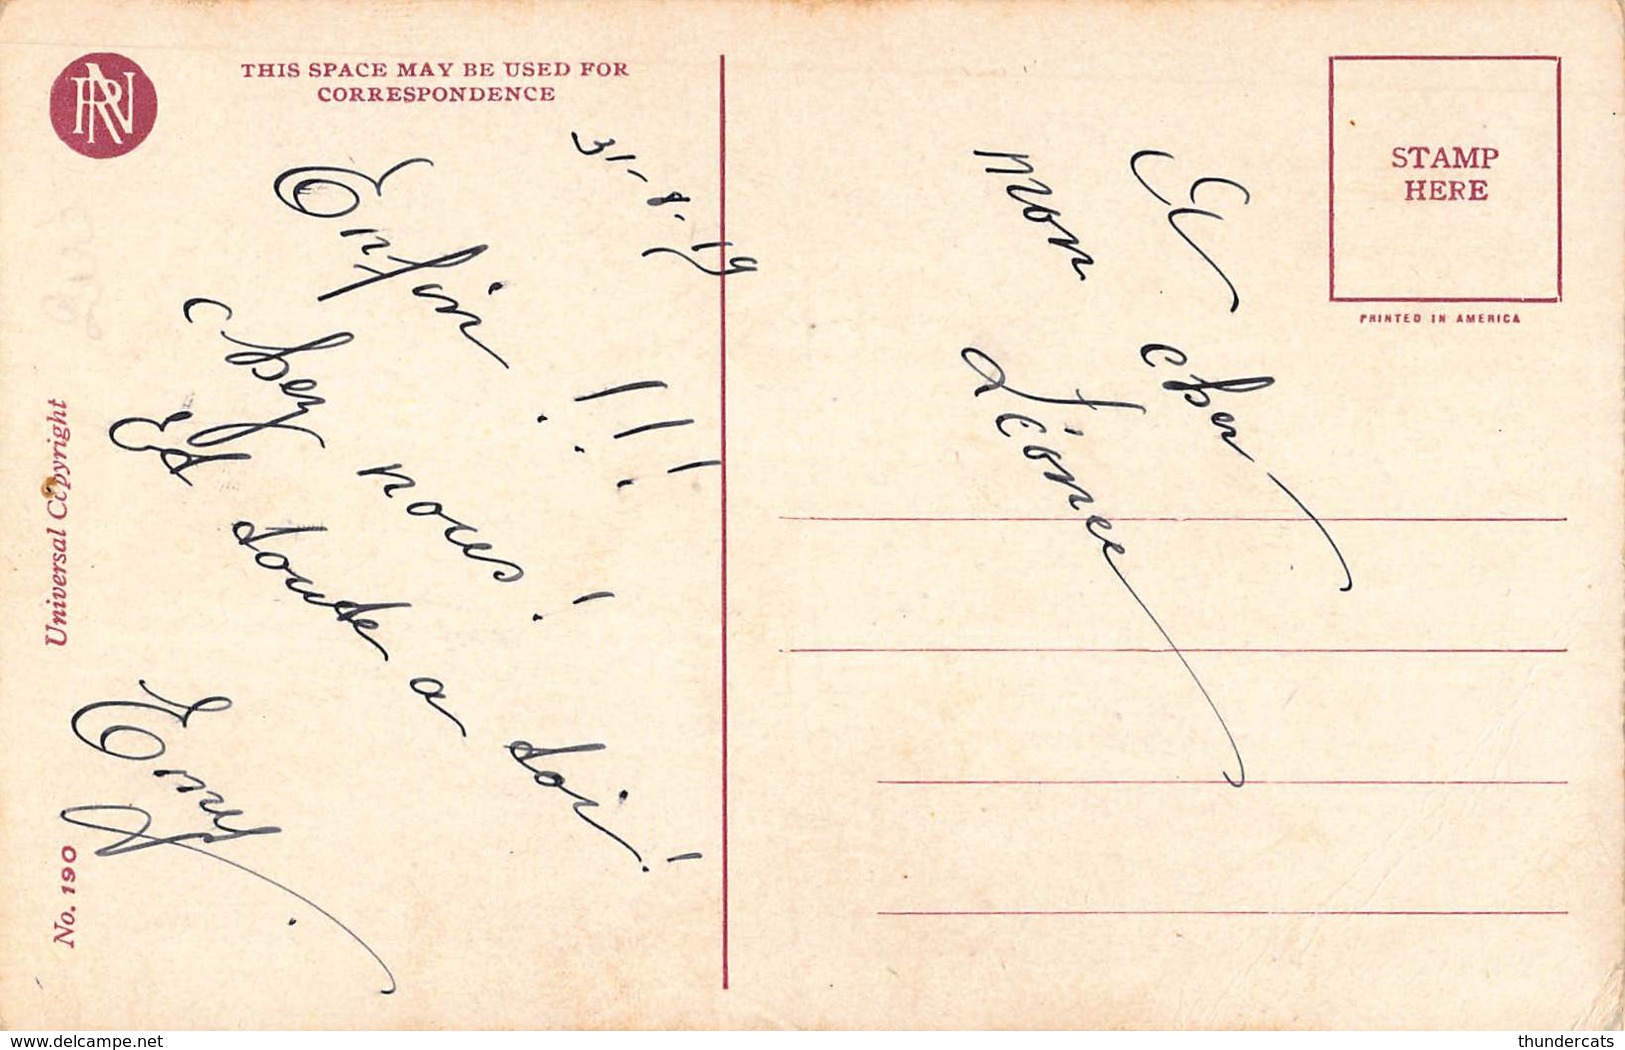 RN
THIS SPACE MAY BE USED FOR
CORRESPONDENCE
31-8-19
Enfin !!!
chez nous!
Et toute a toi!
Emy
A mon cher
Léonce
STAMP
HERE
PRINTED IN AMERICA
Universal Copyright
No. 190
delcampe.net
thundercats